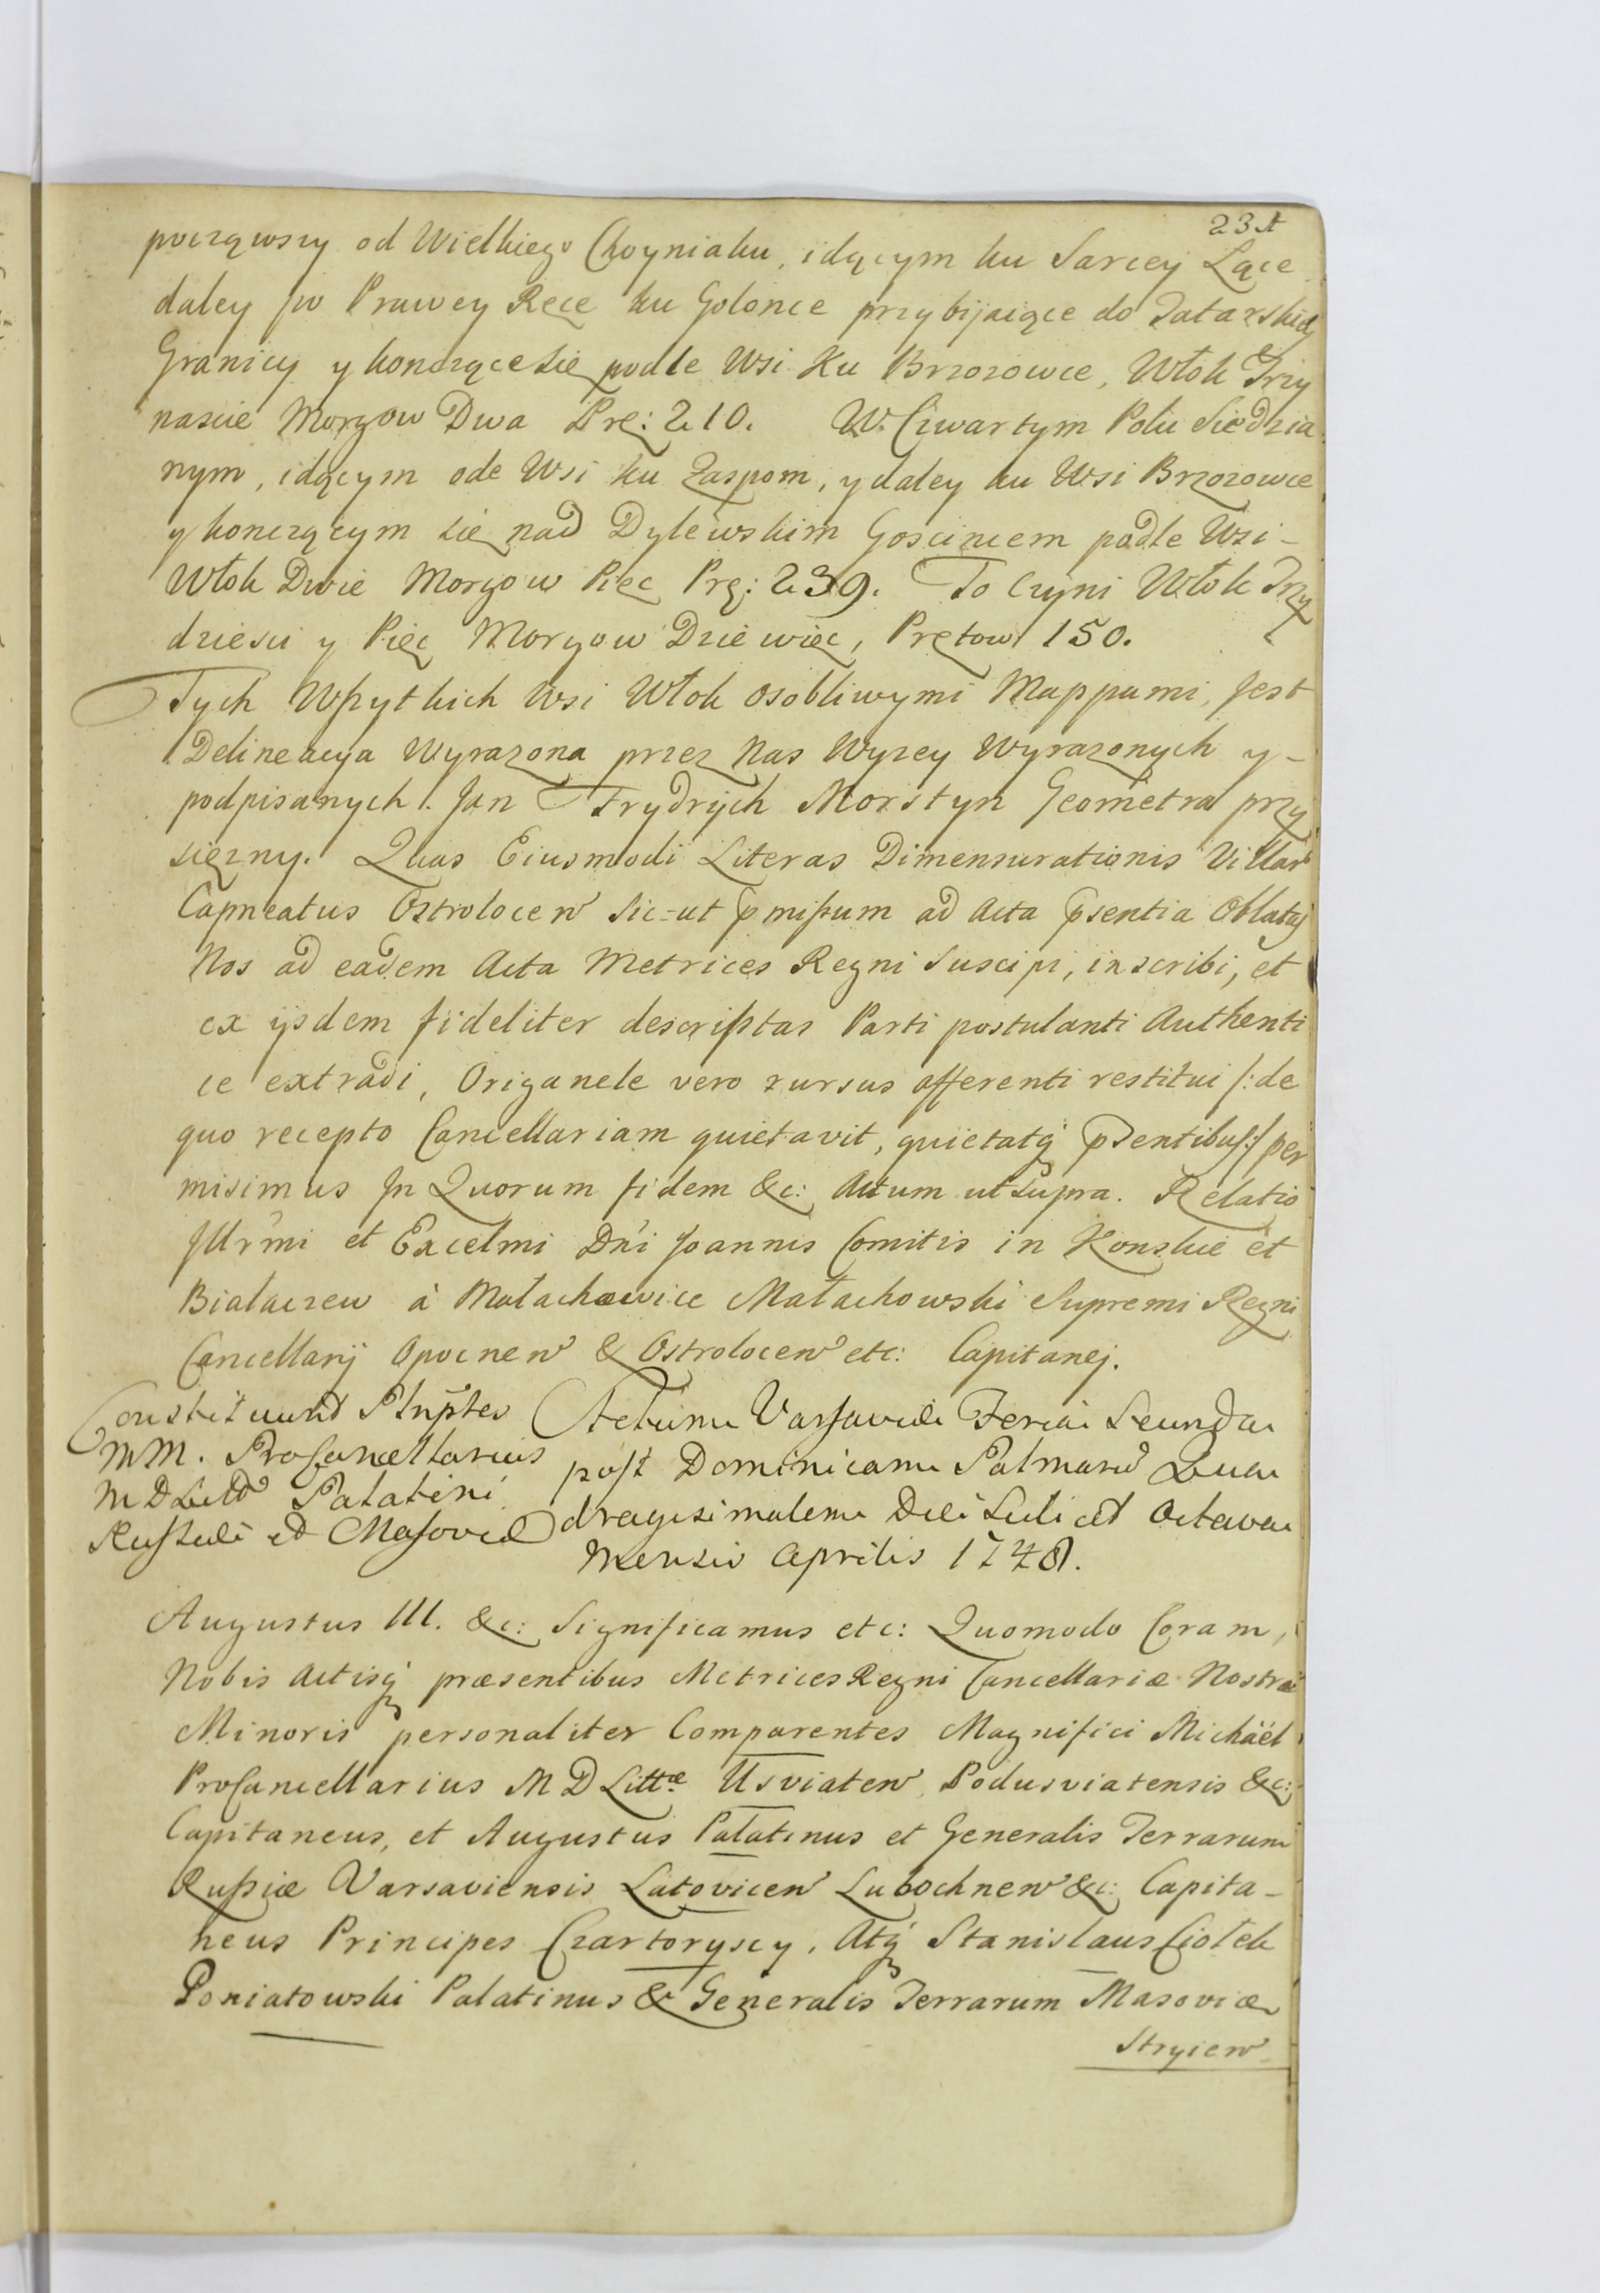 231
począwszy od Wielkiego Choyniaku, idącym ku Sarcey Lące
daley po Prawey Ręce ku Golonce przybijaiące do Tatarskiey
Granicy y konczące Się podle Wsi Ku Brzozowce, Włok Trzy
nascie Morgow Dwa Prę: 210. W. Czwartym Polu Siedzia
nym, idącym ode Wsi ku Zaspom, y daley ku Wsi Brzozowce
y konczącym się nad Dylewskim Goscincem podle Wsi –
Włok Dwie Morgow Pięc Prę: 239. To Czyni Włok Trzy
dziesci y Pięc Morgow Dziewięc, Prętow 150.
Tych Wszytkich Wsi Włok osobliwymi Mappami, Jest
Delineacya Wyrazona przez Nas Wyzey Wyrazonych y –
podpisanych. Jan Frydrych Morstyn Geometra przy
sięzny. Quas Eiusmodi Literas Dimensurationis Villar
Capneatus Ostrolocen Sic=ut pmissum ad Acta psentia Oblatas
Nos ad eadem Acta Metrices Regni Suscipi, inscribi, et
ex ijsdem fideliter descriptas Parti postulanti Authenti
ce extradi, Origanele vero rursus offerenti restitui /: de
quo recepto Cancellariam quietavit, quietatq psentibus :/ per
misimus In Quorum fidem &c: Actum ut Supra. Relatio
Illrmi et Excelmi Dni Joannis Comitis in Konskie et
Bialaczew à Małachowice Małachowski Supremi Regni
Cancellarij Opocnen & Ostrolocen etc: Capitanej.
Constituunt Plnptes
MM. ProCancellarius
M D Litt Palatini
Russiæ et Masoviæ
Actum Varsaviæ Feria Secunda
post Dominicam Palmarum Qua
dragesimalem Die Scilicet Octava
Mensis Aprilis 1748.
Augustus III. &c: Significamus etc: Quomodo Coram,
Nobis Actisq præsentibus Metrices Regni Cancellariæ Nostræ
Minoris personaliter Comparentes Magnifici Michäel
ProCancellarius M D Littæ Usviaten Podusviatensis &c:
Capitaneus, et Augustus Palatinus et Generalis Terrarum
Russiæ Varsaviensis Latovicen Lubochnen &c: Capita –
neus Principes Czartoryscy, Atq Stanislaus Ciołek
Poniatowski Palatinus & Generalis Terrarum Masoviæ
Stryien